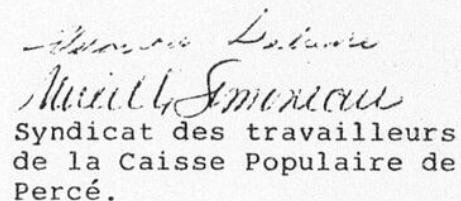 Simoneau
Syndicat des travailleurs
de la Caisse Populaire de
Percé.